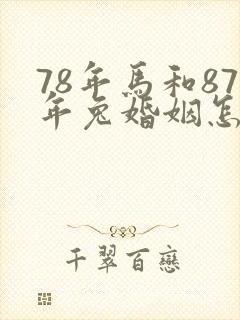 78年馬和87
年兔婚姻怎
千翠百戀